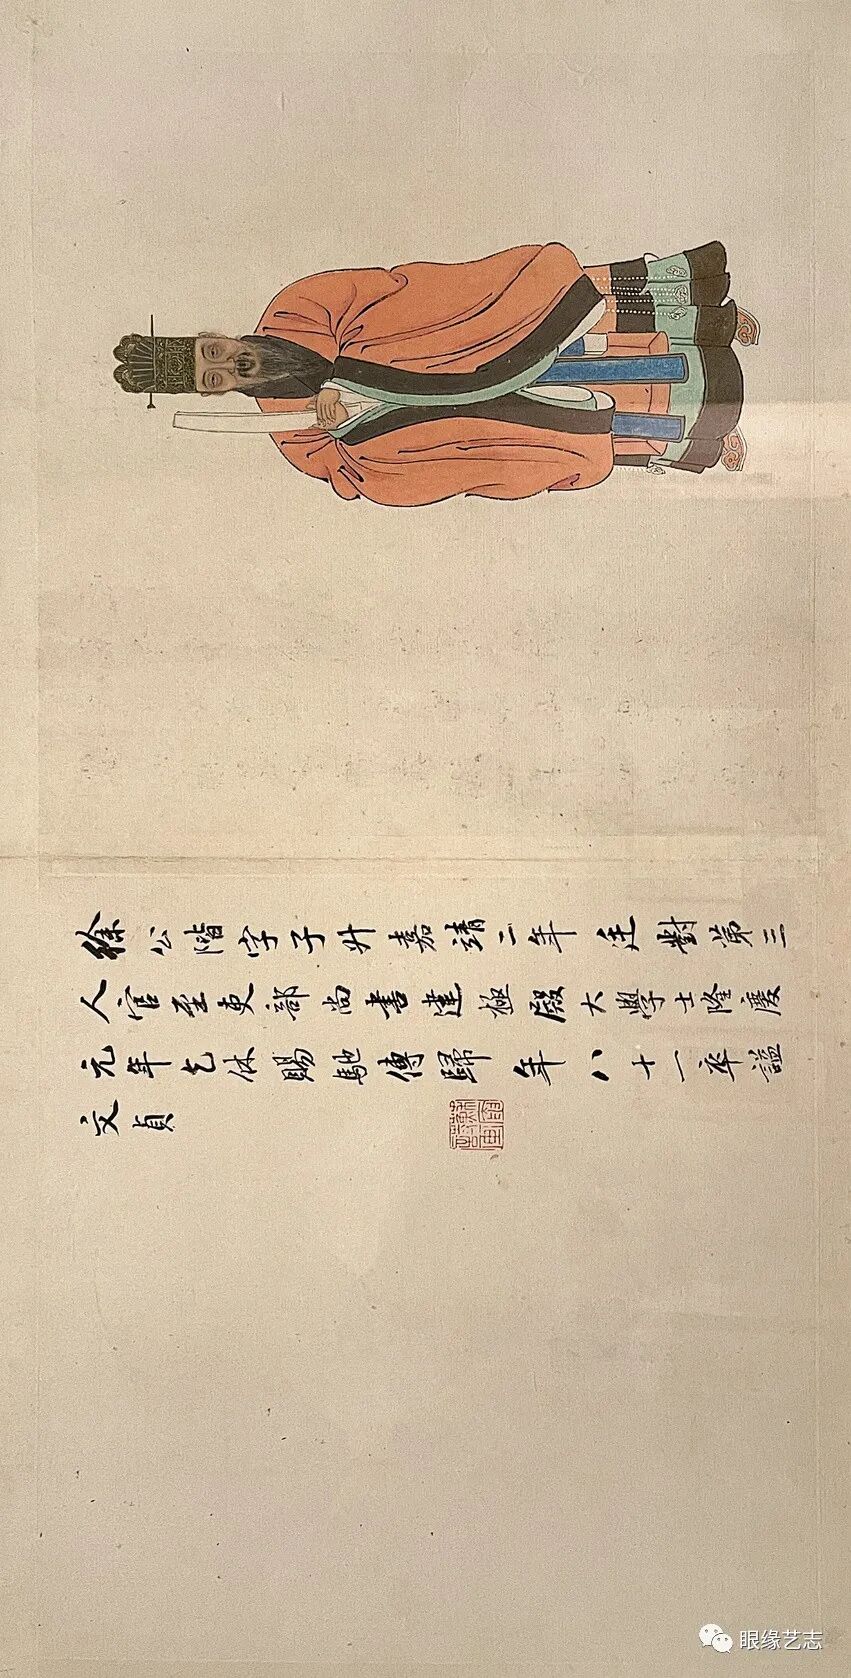 徐公階字子升嘉靖二年廷對第三
人官至吏部尚書建極殿大學士隆慶
元年乞休賜馳傳歸年八十一卒謚
文貞
眼缘艺志